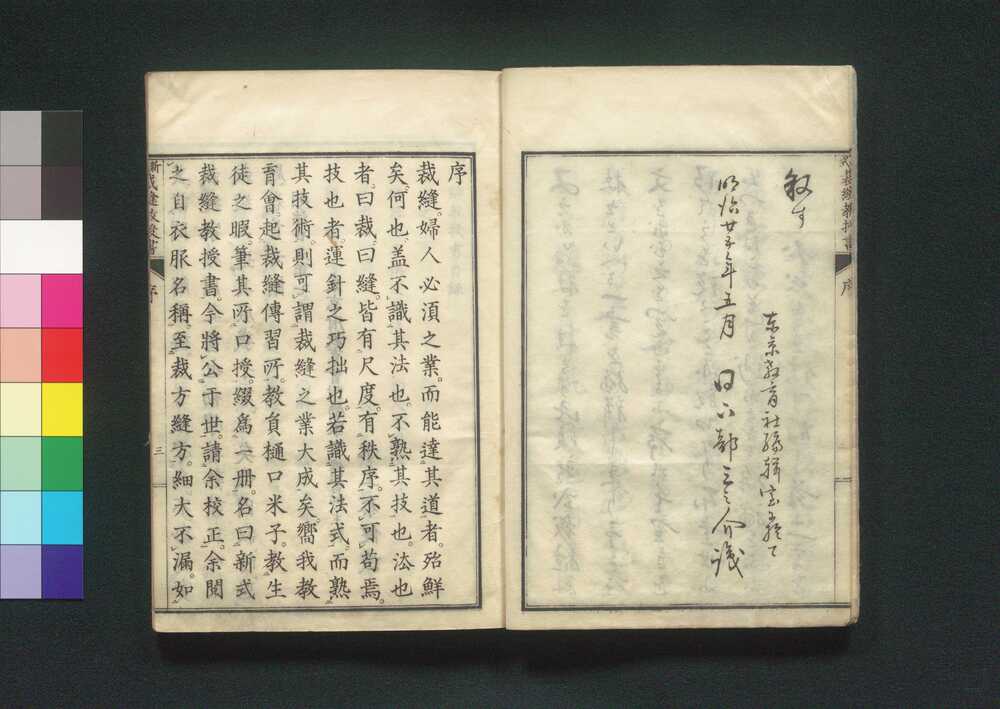 叙す
東京教育社編輯室に於て
明治廿五年五月 日下部三之介識
序
裁縫。婦人必須之業。而能達其道者。殆鮮
矣。何也。盖不識其法也。不熟其技也。法也
者。曰裁。曰縫。皆有尺度。有秩序。不可苟焉。
技也者。運針之巧拙也。若識其法式。而熟
其技術。則可謂裁縫之業大成矣。嚮我教
育會起裁縫傳習所。教員樋口米子。教生
徒之暇。筆其所口授。綴爲一冊。名曰新式
裁縫教授書。今將公于世。請余校正。余閲
之。自衣服名稱。至裁方縫方。細大不漏。如
新式裁縫教授書
序
三